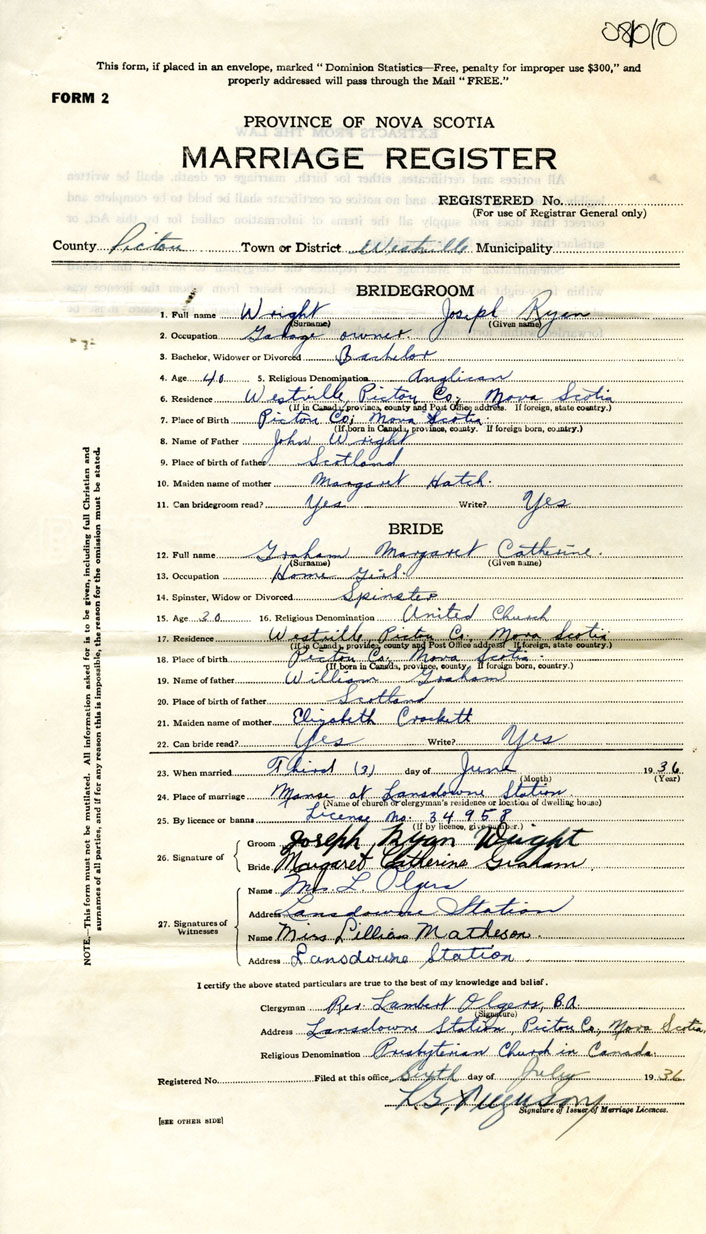 This form, if placed in an envelope, marked "Dominion Statistics—Free, penalty for improper use $300," and
properly addressed will pass through the Mail "FREE."
FORM 2
PROVINCE OF NOVA SCOTIA
MARRIAGE REGISTER
REGISTERED No.
(For use of Registrar General only)
County Pictou Town or District Westville Municipality
BRIDEGROOM
1. Full name Wright Joseph Ryan
(Surname) (Given name)
2. Occupation Garage owner.
3. Bachelor, Widower or Divorced Bachelor
4. Age 40 5. Religious Denomination Anglican
6. Residence Westville, Pictou Co., Nova Scotia
(If in Canada, province, county and Post Office address. If foreign, state country.)
7. Place of Birth Pictou Co; Nova Scotia.
(If born in Canada, province, county. If foreign born, country.)
8. Name of Father John Wright
9. Place of birth of father Scotland
10. Maiden name of mother Margaret Hatch.
11. Can bridegroom read? Yes Write? Yes
BRIDE
12. Full name Graham Margaret Catherine.
(Surname) (Given name)
13. Occupation Home Girl.
14. Spinster, Widow or Divorced Spinster
15. Age 30 16. Religious Denomination United Church
17. Residence Westville, Pictou Co., Nova Scotia
(If in Canada, province, county and Post Office address. If foreign, state country.)
18. Place of birth Pictou Co., Nova Scotia.
(If born in Canada, province, county. If foreign born, country.)
19. Name of father William Graham
20. Place of birth of father Scotland
21. Maiden name of mother Elizabeth Crockett
22. Can bride read? Yes Write? Yes
23. When married Third (3) day of June 1936
(Month) (Year)
24. Place of marriage Manse at Lansdowne Station
(Name of church or clergyman's residence or location of dwelling house)
25. By licence or banns License No. 34958
(If by licence, give number.)
26. Signature of
Groom Joseph Ryan Wright
Bride Margaret Catherine Graham
27. Signatures of Witnesses
Name Mrs. L Olgers
Address Lansdowne Station
Name Miss Lillian Matheson.
Address Lansdowne Station.
I certify the above stated particulars are true to the best of my knowledge and belief.
Clergyman Rev Lambert Olgers, B.A.
(Signature)
Address Lansdowne Station, Pictou Co., Nova Scotia,
Religious Denomination Presbyterian Church in Canada
Registered No. Filed at this office, Sixth day of July 1936
Signature of Issuer of Marriage Licences.
[SEE OTHER SIDE]
NOTE.—This form must not be mutilated. All information asked for is to be given, including full Christian and
surnames of all parties, and if for any reason this is impossible, the reason for the omission must be stated.